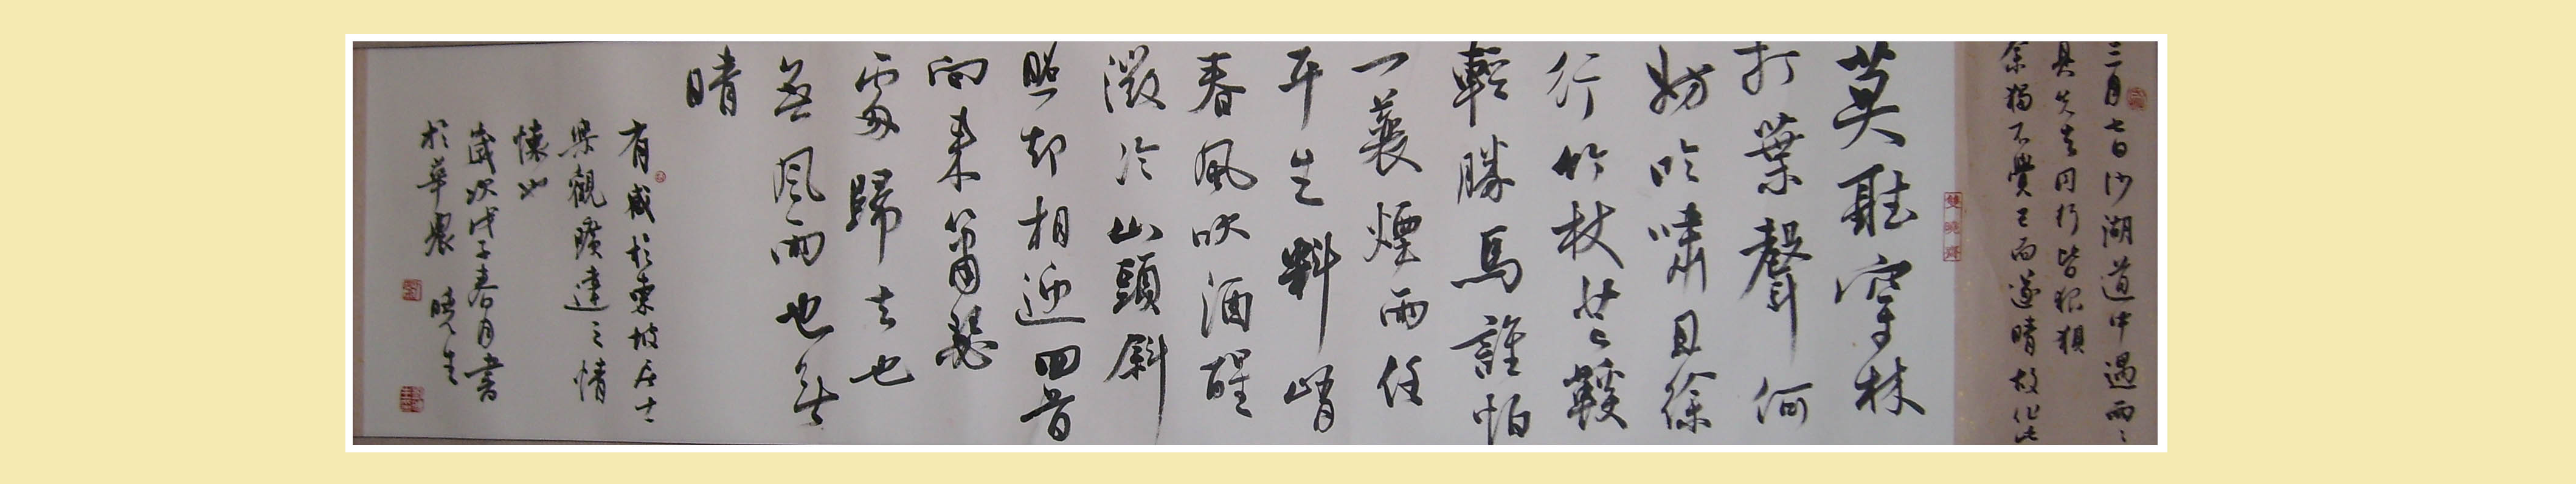 三月七日沙湖道中遇雨雨
具先去同行皆狼狽
余獨不覺已而遂晴故作此
雙曉齋
莫聽穿林
打葉聲何
妨吟嘯且徐
行竹杖芒鞵
輕勝馬誰怕
一蓑煙雨任
平生料峭
春風吹酒醒
微冷山頭斜
照却相迎回首
向來蕭瑟
處歸去也
無風雨也無
晴
有感於東坡居士
樂觀曠達之情
懷也
歲次戊子春月書
於華農 曉生